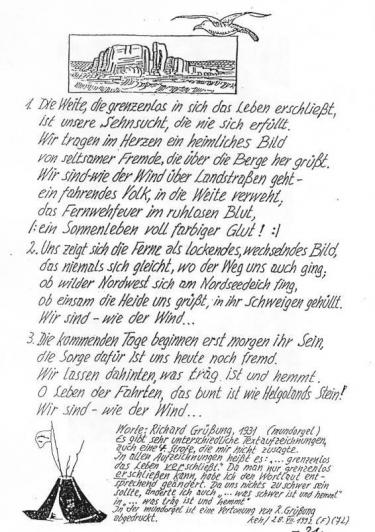 1. Die Weite, die grenzenlos in sich das Leben erschließt,
ist unsere Sehnsucht, die nie sich erfüllt.
Wir tragen im Herzen ein heimliches Bild
von seltsamer Fremde, die über die Berge her grüßt.
Wir sind-wie der Wind über Landstraßen geht-
ein fahrendes Volk, in die Weite verweht,
das Fernwehfeuer im ruhlosen Blut,
/: ein Sonnenleben voll farbiger Glut ! :/
2. Uns zeigt sich die Ferne als lockendes, wechselndes Bild,
das niemals sich gleicht, wo der Weg uns auch ging;
ob wilder Nordwest sich am Nordseedeich fing,
ob einsam die Heide uns grüßt, in ihr Schweigen gehüllt.
Wir sind - wie der Wind...
3. Die kommenden Tage beginnen erst morgen ihr Sein,
die Sorge dafür ist uns heute noch fremd.
Wir lassen dahinten, was träg ist und hemmt.
O Leben der Fahrten, das bunt ist wie Helgolands Stein!
Wir sind - wie der Wind...
Worte: Richard Grüßung, 1931 (mundorgel)
Es gibt sehr unterschiedliche Textaufzeichnungen,
auch eine 4. Strofe, die mir nicht zusagte.
In allen Aufzeichnungen heißt es: „... grenzenlos
das Leben verschließt." Da man nur grenzenlos
erschließen kann, habe ich den Wortlaut ent-
sprechend geändert. Da uns nichts zu schwer sein
sollte, änderte ich auch „... was schwer ist und hemmt"
in „... was träg ist und hemmt"
In der mundorgel ist eine Vertonung von R. Grüßung
abgedruckt.